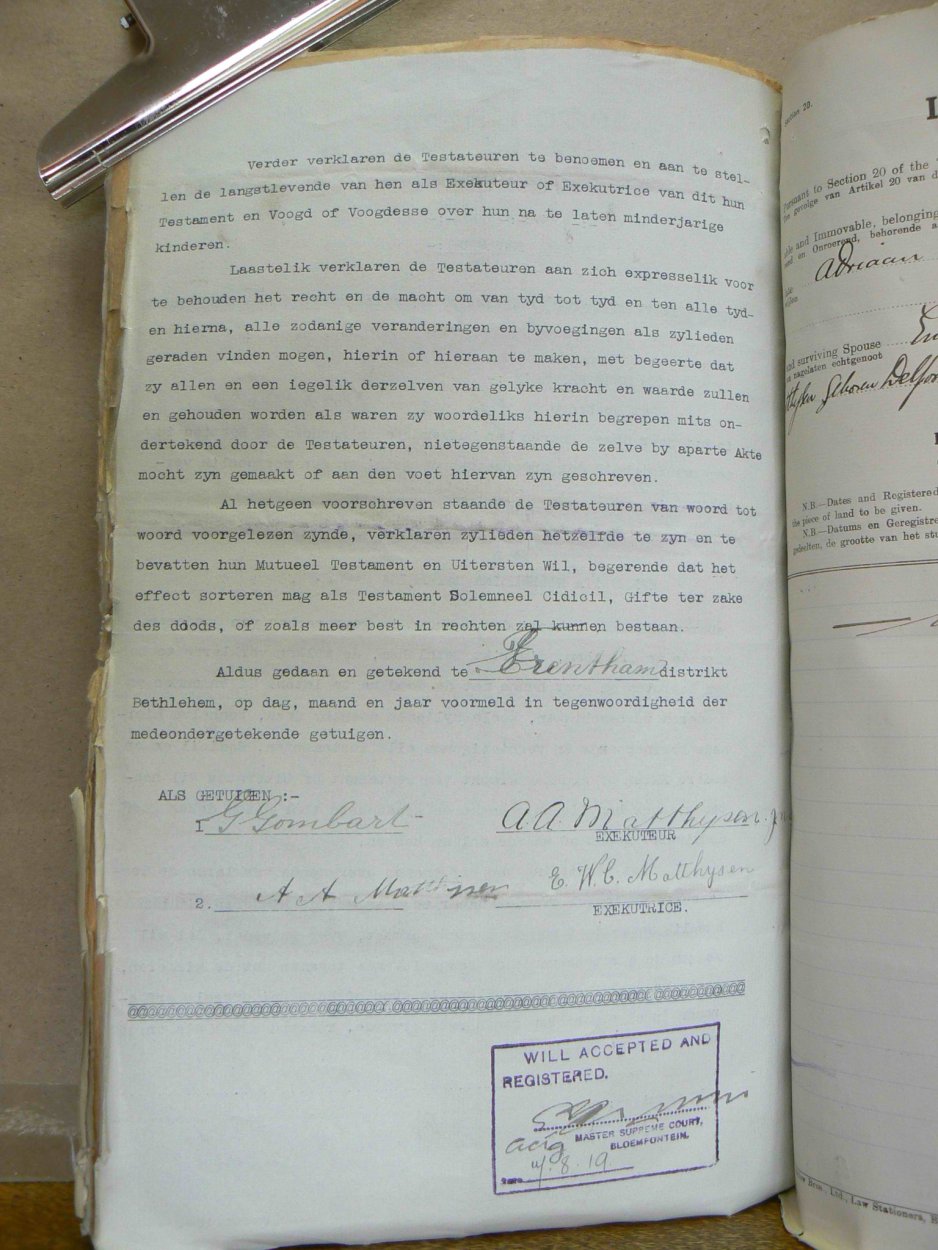 Verder verklaren de Testateuren te benoemen en aan te stel-
len de langstlevende van hen als Exekuteur of Exekutrice van dit hun
Testament en Voogd of Voogdesse over hun na te laten minderjarige
kinderen.
Laastelik verklaren de Testateuren aan zich expresselik voor
te behouden het recht en de macht om van tyd tot tyd en ten alle tyd-
en hierna, alle zodanige veranderingen en byvoegingen als zylieden
geraden vinden mogen, hierin of hieraan te maken, met begeerte dat
zy allen en een iegelik derzelven van gelyke kracht en waarde zullen
en gehouden worden als waren zy woordeliks hierin begrepen mits on-
dertekend door de Testateuren, nietegenstaande de zelve by aparte Akte
mocht zyn gemaakt of aan den voet hiervan zyn geschreven.
Al hetgeen voorschreven staande de Testateuren van woord tot
woord voorgelezen zynde, verklaren zylieden hetzelfde te zyn en te
bevatten hun Mutueel Testament en Uitersten Wil, begerende dat het
effect sorteren mag als Testament Solemneel Cidicil, Gifte ter zake
des doods, of zoals meer best in rechten zal kunnen bestaan.
Aldus gedaan en getekend te Trentham distrikt
Bethlehem, op dag, maand en jaar voormeld in tegenwoordigheid der
medeondergetekende getuigen.
ALS GETUIGEN :-
1 G Gombart
A.A. Matthysen. Jnr
EXEKUTEUR
2. A A Matthysen
E. W. C. Matthysen
EXEKUTRICE.
WILL ACCEPTED AND
REGISTERED.
actg MASTER SUPREME COURT,
BLOEMFONTEIN.
Date 8.19
section 20.
Pursuant to Section 20 of the
gevolge van Artikel 20 van d
and Immovable, belonging
en Onroerend, behorende a
Adriaan
and surviving Spouse
nagelaten echtgenoot
geboren
N.B.—Dates and Registered
the piece of land to be given.
N.B.—Datums en Geregistre
gedeelten, de grootte van het stu
Bros. Ltd., Law Stationers,